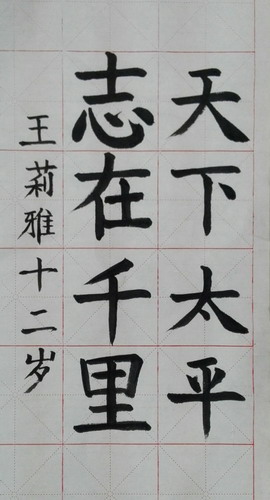 天下太平
志在千里
王莉雅十二岁